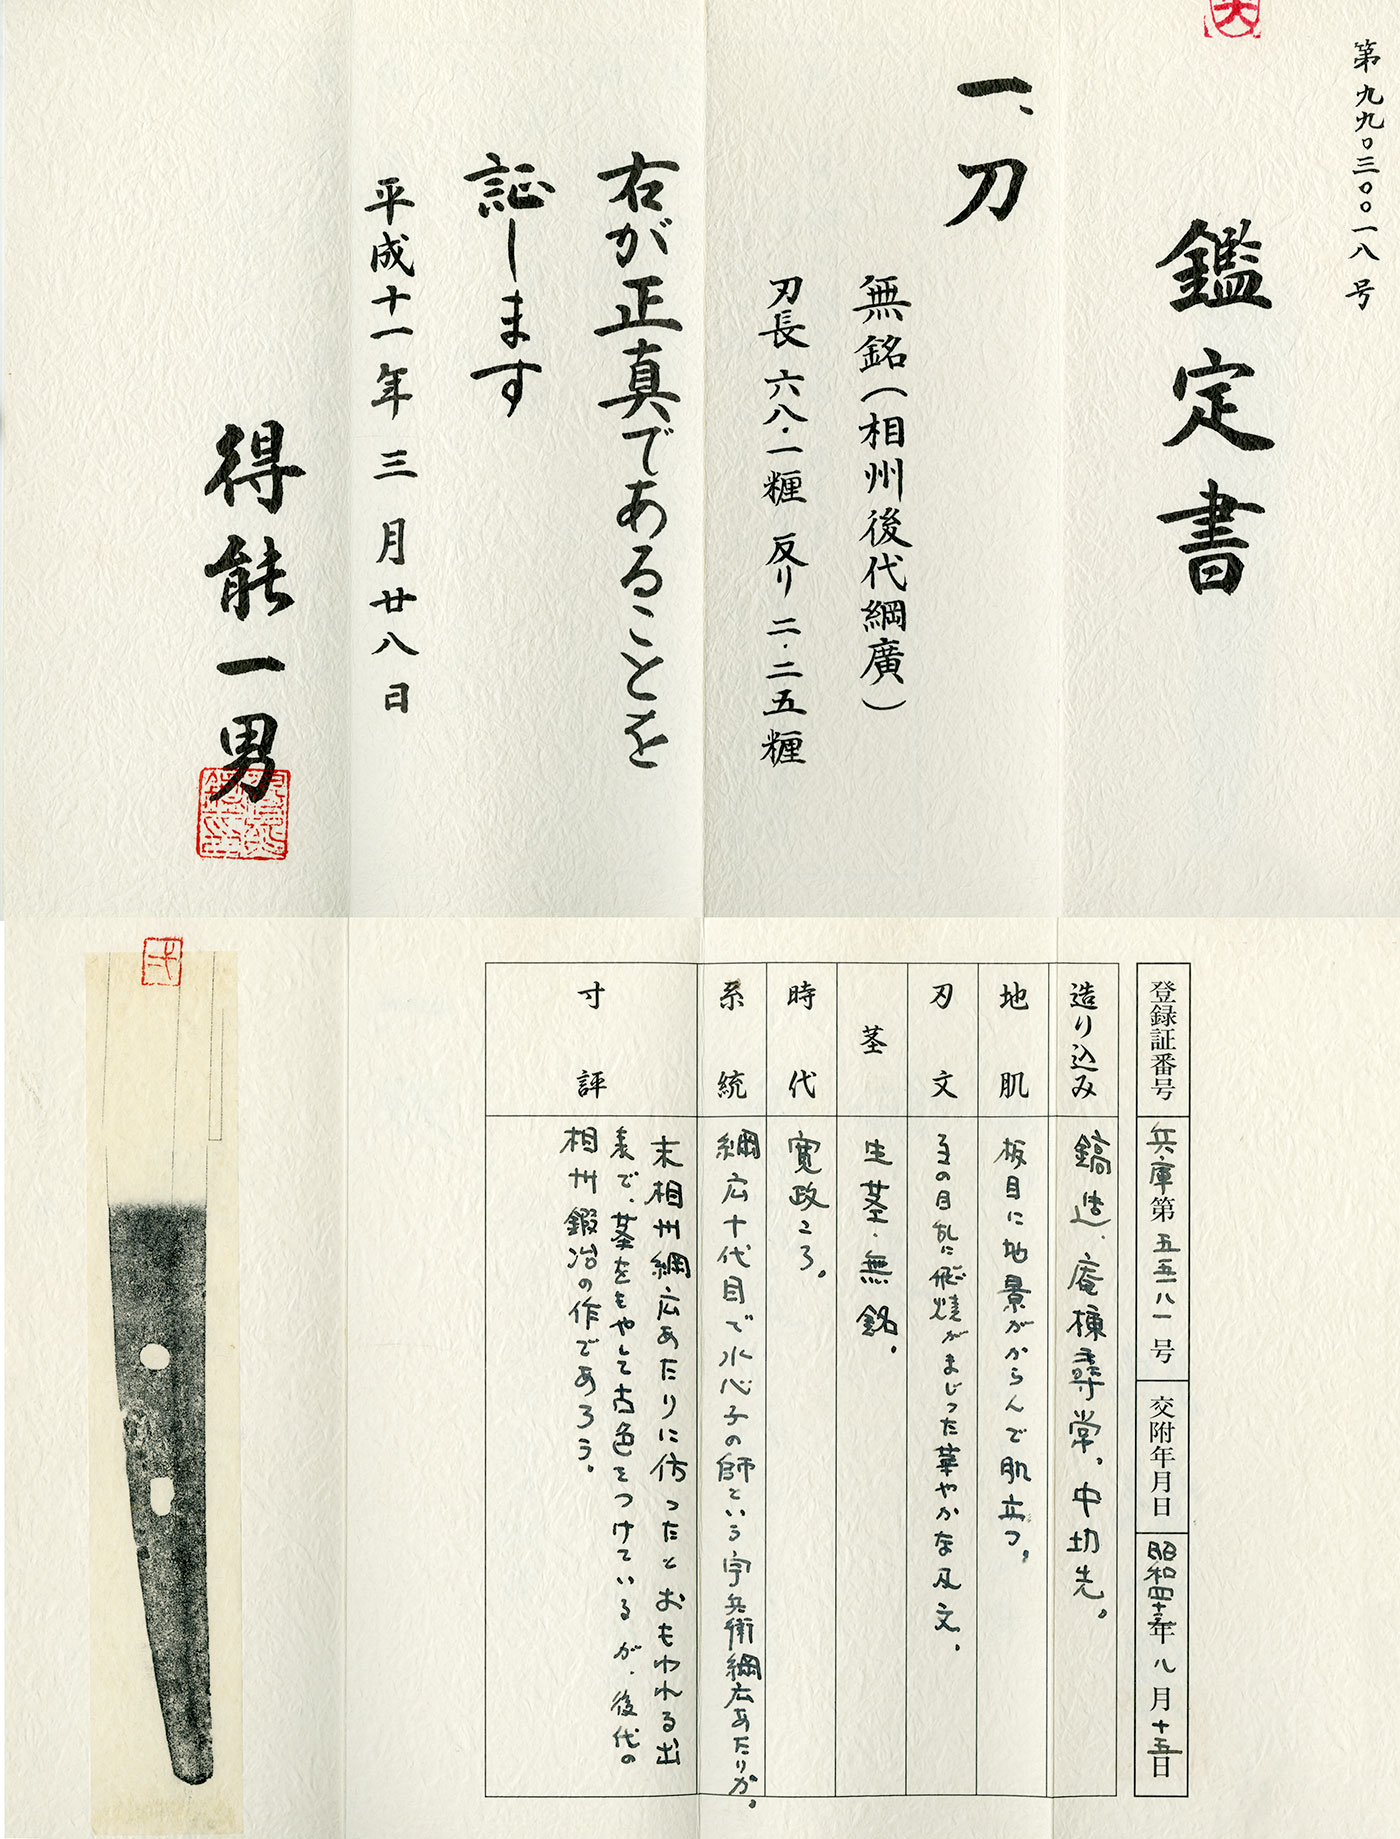 第九九〇三〇〇一八号
鑑定書
一、刀
無銘(相州後代綱廣)
刃長 六八・一糎 反り 二・二五糎
右が正真であることを
証します
平成十一年三月廿八日
得能一男
登録証番号 兵庫第五五一八一号 交附年月日 昭和四十三年八月十五日
造り込み 鎬造、庵棟尋常。中切先。
地肌 板目に地景がからんで肌立つ。
刃文 互の目乱に飛焼がまじった華やかな刃文。
茎 生茎、無銘。
時代 寛政ころ。
系統 綱広十代目で水心子の師という宇兵衛綱広あたりか。
寸評 末相州綱広あたりに仿ったとおもわれる出
来で、茎をもやして古色をつけているが、後代の
相州鍛冶の作であろう。